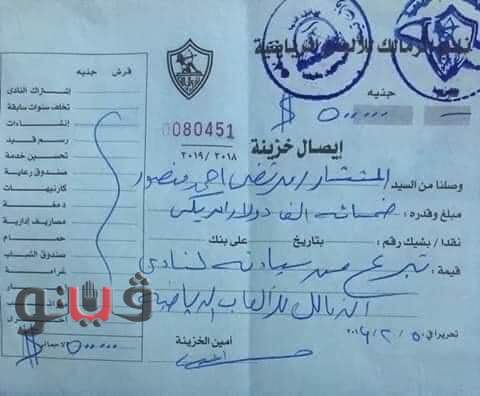 نادي الزمالك للألعاب الرياضية
جنيه
$ ٥٠٠٠٠٠
0080451
إيصال خزينة
٢٠١٩/٢٠١٨
وصلنا من السيد / المستشار / مرتضى احمد منصور
مبلغ وقدره : خمسمائة الف دولار امريكى
نقدا / بشيك رقم : بتاريخ على بنك
قيمة : تبرع من سيادته لنادى
الزمالك للألعاب الرياضية
تحريرا في / ٥ / ٢ /
أمين الخزينة
قرش جنيه
إشتراك النادى
تخلف سنوات سابقة
إنشاءات
رسم قيد
تحسين خدمة
صندوق رعاية
كارنيهات
دمغة
مصاريف إدارية
حمام
صندوق الشباب
غرامة
$ ٥٠٠٠٠٠
ڤيتو